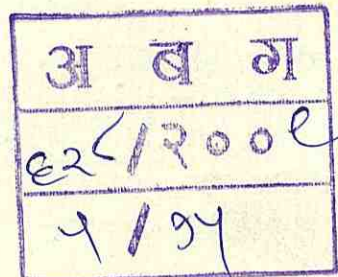 अ ब ग
६२८/२००९
५/१५